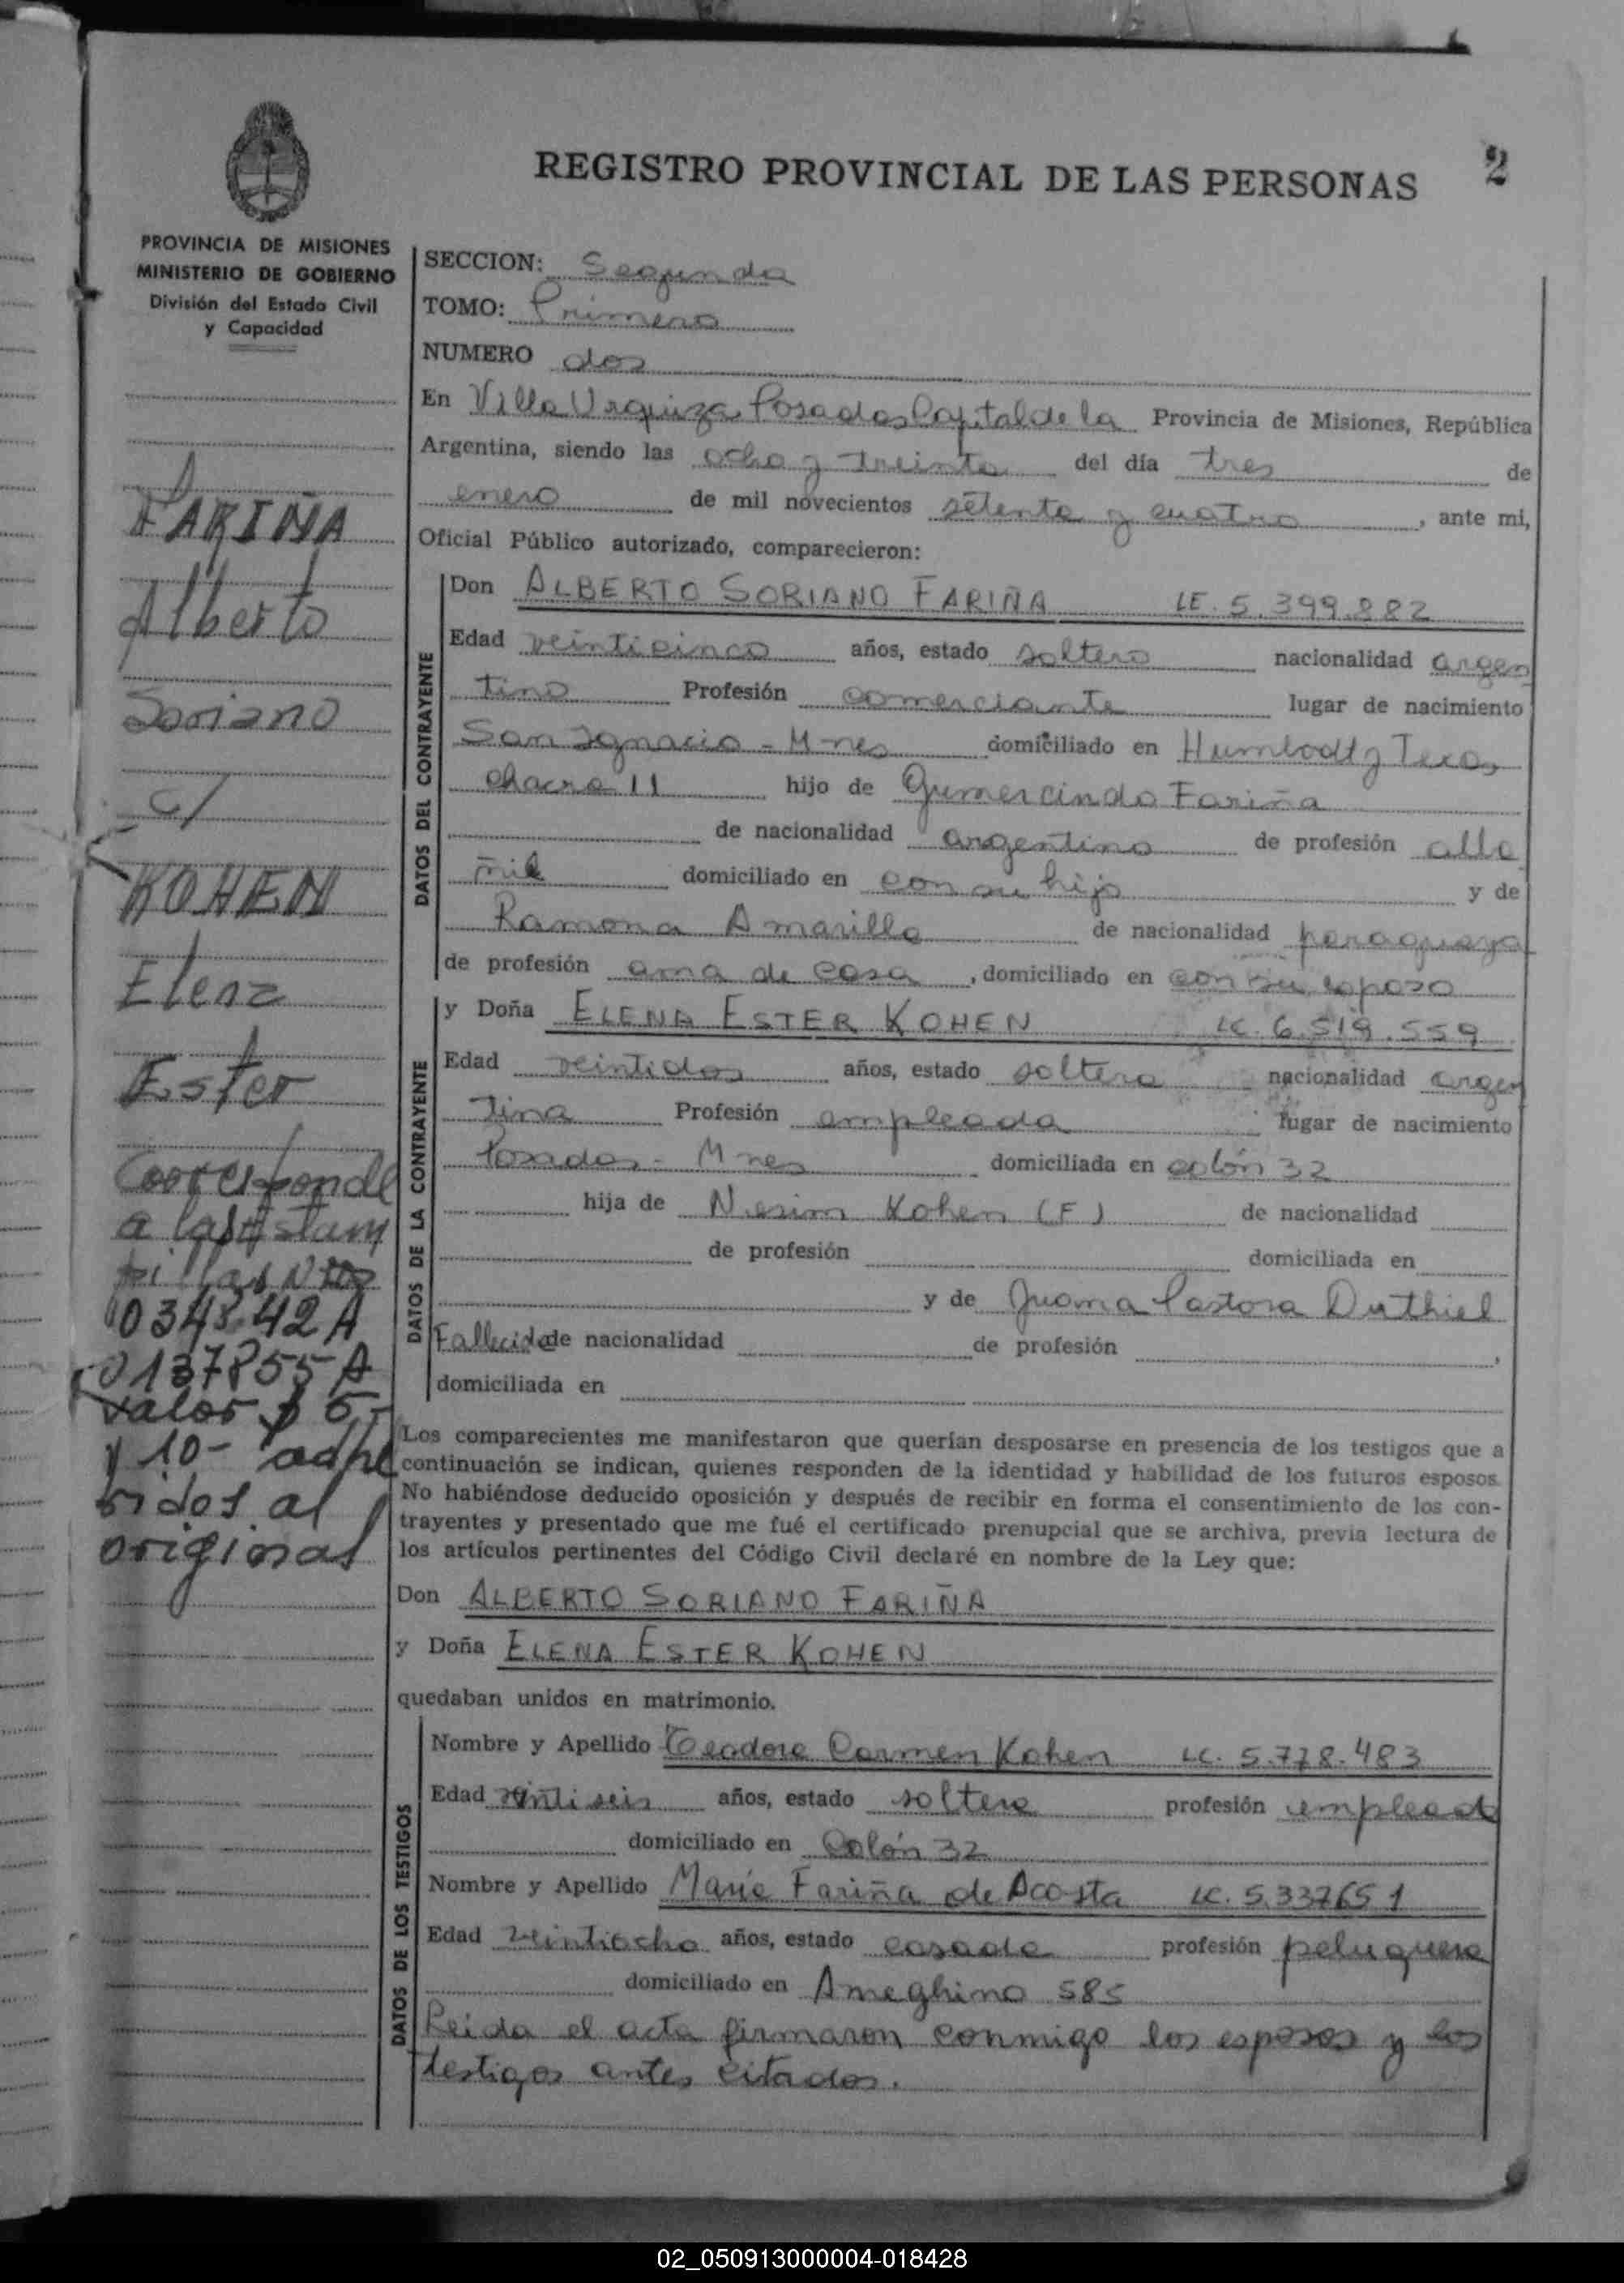 REGISTRO PROVINCIAL DE LAS PERSONAS
2
PROVINCIA DE MISIONES
MINISTERIO DE GOBIERNO
División del Estado Civil
y Capacidad
FARIÑA
Alberto
Soriano
c/
KOHEN
Elena
Ester
Corresponde
a las Estam
pillas Nros
0348.42A
0137855 A
valor $ 5-
y 10- adhe
ridos al
original
SECCION: Segunda
TOMO: Primero
NUMERO dos
En Villa Urquiza Posadas Capital de la Provincia de Misiones, República
Argentina, siendo las ocho y treinta del día tres de
enero de mil novecientos setenta y cuatro, ante mi,
Oficial Público autorizado, comparecieron:
DATOS DEL CONTRAYENTE
Don ALBERTO SORIANO FARIÑA LE. 5.399.882
Edad veinticinco años, estado soltero nacionalidad argen
tino Profesión comerciante lugar de nacimiento
San Ignacio - Mnes domiciliado en Humbodt y Tecas
chacra 11 hijo de Gumercindo Fariña
de nacionalidad argentino de profesión alba
ñil domiciliado en con su hijo y de
Ramona Amarilla de nacionalidad paraguaya
de profesión ama de casa, domiciliado en con su esposo
DATOS DE LA CONTRAYENTE
y Doña ELENA ESTER KOHEN LC. 6.519.559
Edad veintidos años, estado soltera nacionalidad argen
tina Profesión empleada lugar de nacimiento
Posadas - Mnes domiciliada en colón 32
hija de Nesim Kohen (F) de nacionalidad
de profesión domiciliada en
y de Juana Pastora Duthiel
Fallecida de nacionalidad de profesión ,
domiciliada en
Los comparecientes me manifestaron que querían desposarse en presencia de los testigos que a
continuación se indican, quienes responden de la identidad y habilidad de los futuros esposos.
No habiéndose deducido oposición y después de recibir en forma el consentimiento de los con-
trayentes y presentado que me fué el certificado prenupcial que se archiva, previa lectura de
los artículos pertinentes del Código Civil declaré en nombre de la Ley que:
Don ALBERTO SORIANO FARIÑA
y Doña ELENA ESTER KOHEN
quedaban unidos en matrimonio.
DATOS DE LOS TESTIGOS
Nombre y Apellido Teodora Carmen Kohen LC. 5.778.483
Edad veintiseis años, estado soltera profesión empleada
domiciliado en Colón 32
Nombre y Apellido María Fariña de Acosta LC. 5.337651
Edad veintiocho años, estado casada profesión peluquera
domiciliado en Ameghino 585
Leida el acta firmaron conmigo los esposos y los
testigos antes citados.
02_050913000004-018428